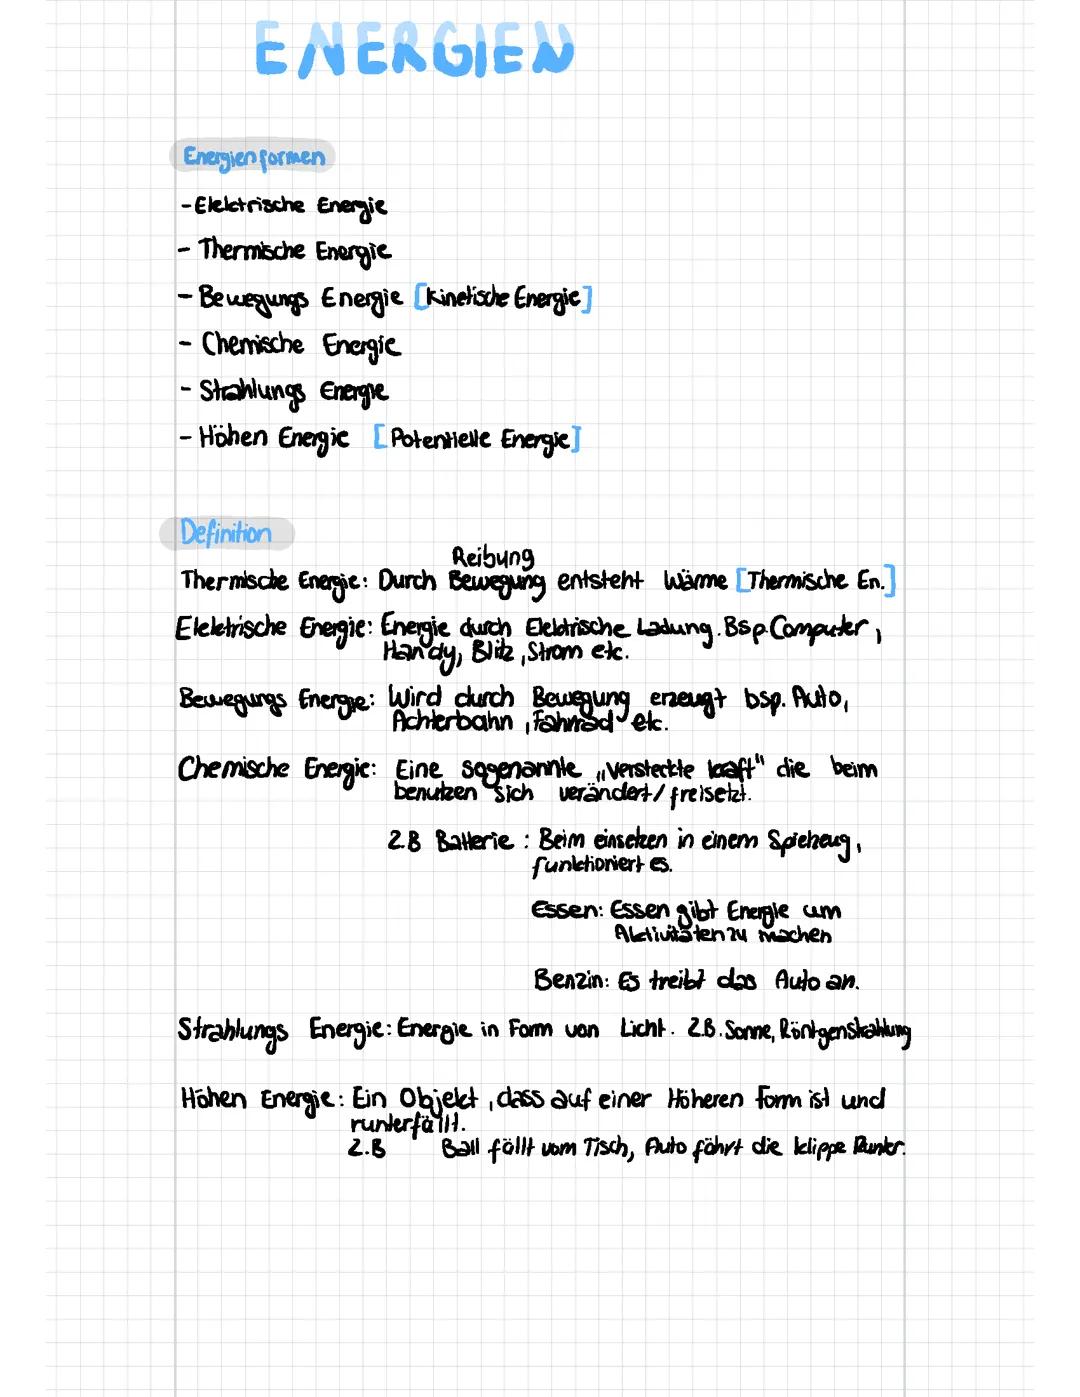 ENERGIEN
Energienformen
- Elektrische Energie
- Thermische Energie
- Bewegungs Energie [kinetische Energie]
- Chemische Energie
- Strahlungs Energie
- Höhen Energie [Potentielle Energie]
Definition
Reibung
Thermische Energie: Durch Bewegung entsteht Wärme [Thermische En.]
Elektrische Energie: Energie durch Elektrische Ladung. Bsp. Computer,
Handy, Blitz, Strom etc.
Bewegungs Energie: Wird durch Bewegung erzeugt bsp. Auto,
Achterbahn, Fahrrad etc.
Chemische Energie: Eine sogenannte „versteckte kraft" die beim
benutzen sich verändert/freisetzt.
Z.B Batterie: Beim einsetzen in einem Spielzeug,
funktioniert es.
Essen: Essen gibt Energie um
Aktivitäten zu machen
Benzin: Es treibt das Auto an.
Strahlungs Energie: Energie in Form von Licht. Z.B. Sonne, Röntgenstrahlung
Höhen Energie: Ein Objekt, dass auf einer Höheren Form ist und
runterfällt.
Z.B Ball fällt vom Tisch, Auto fährt die klippe Runter.